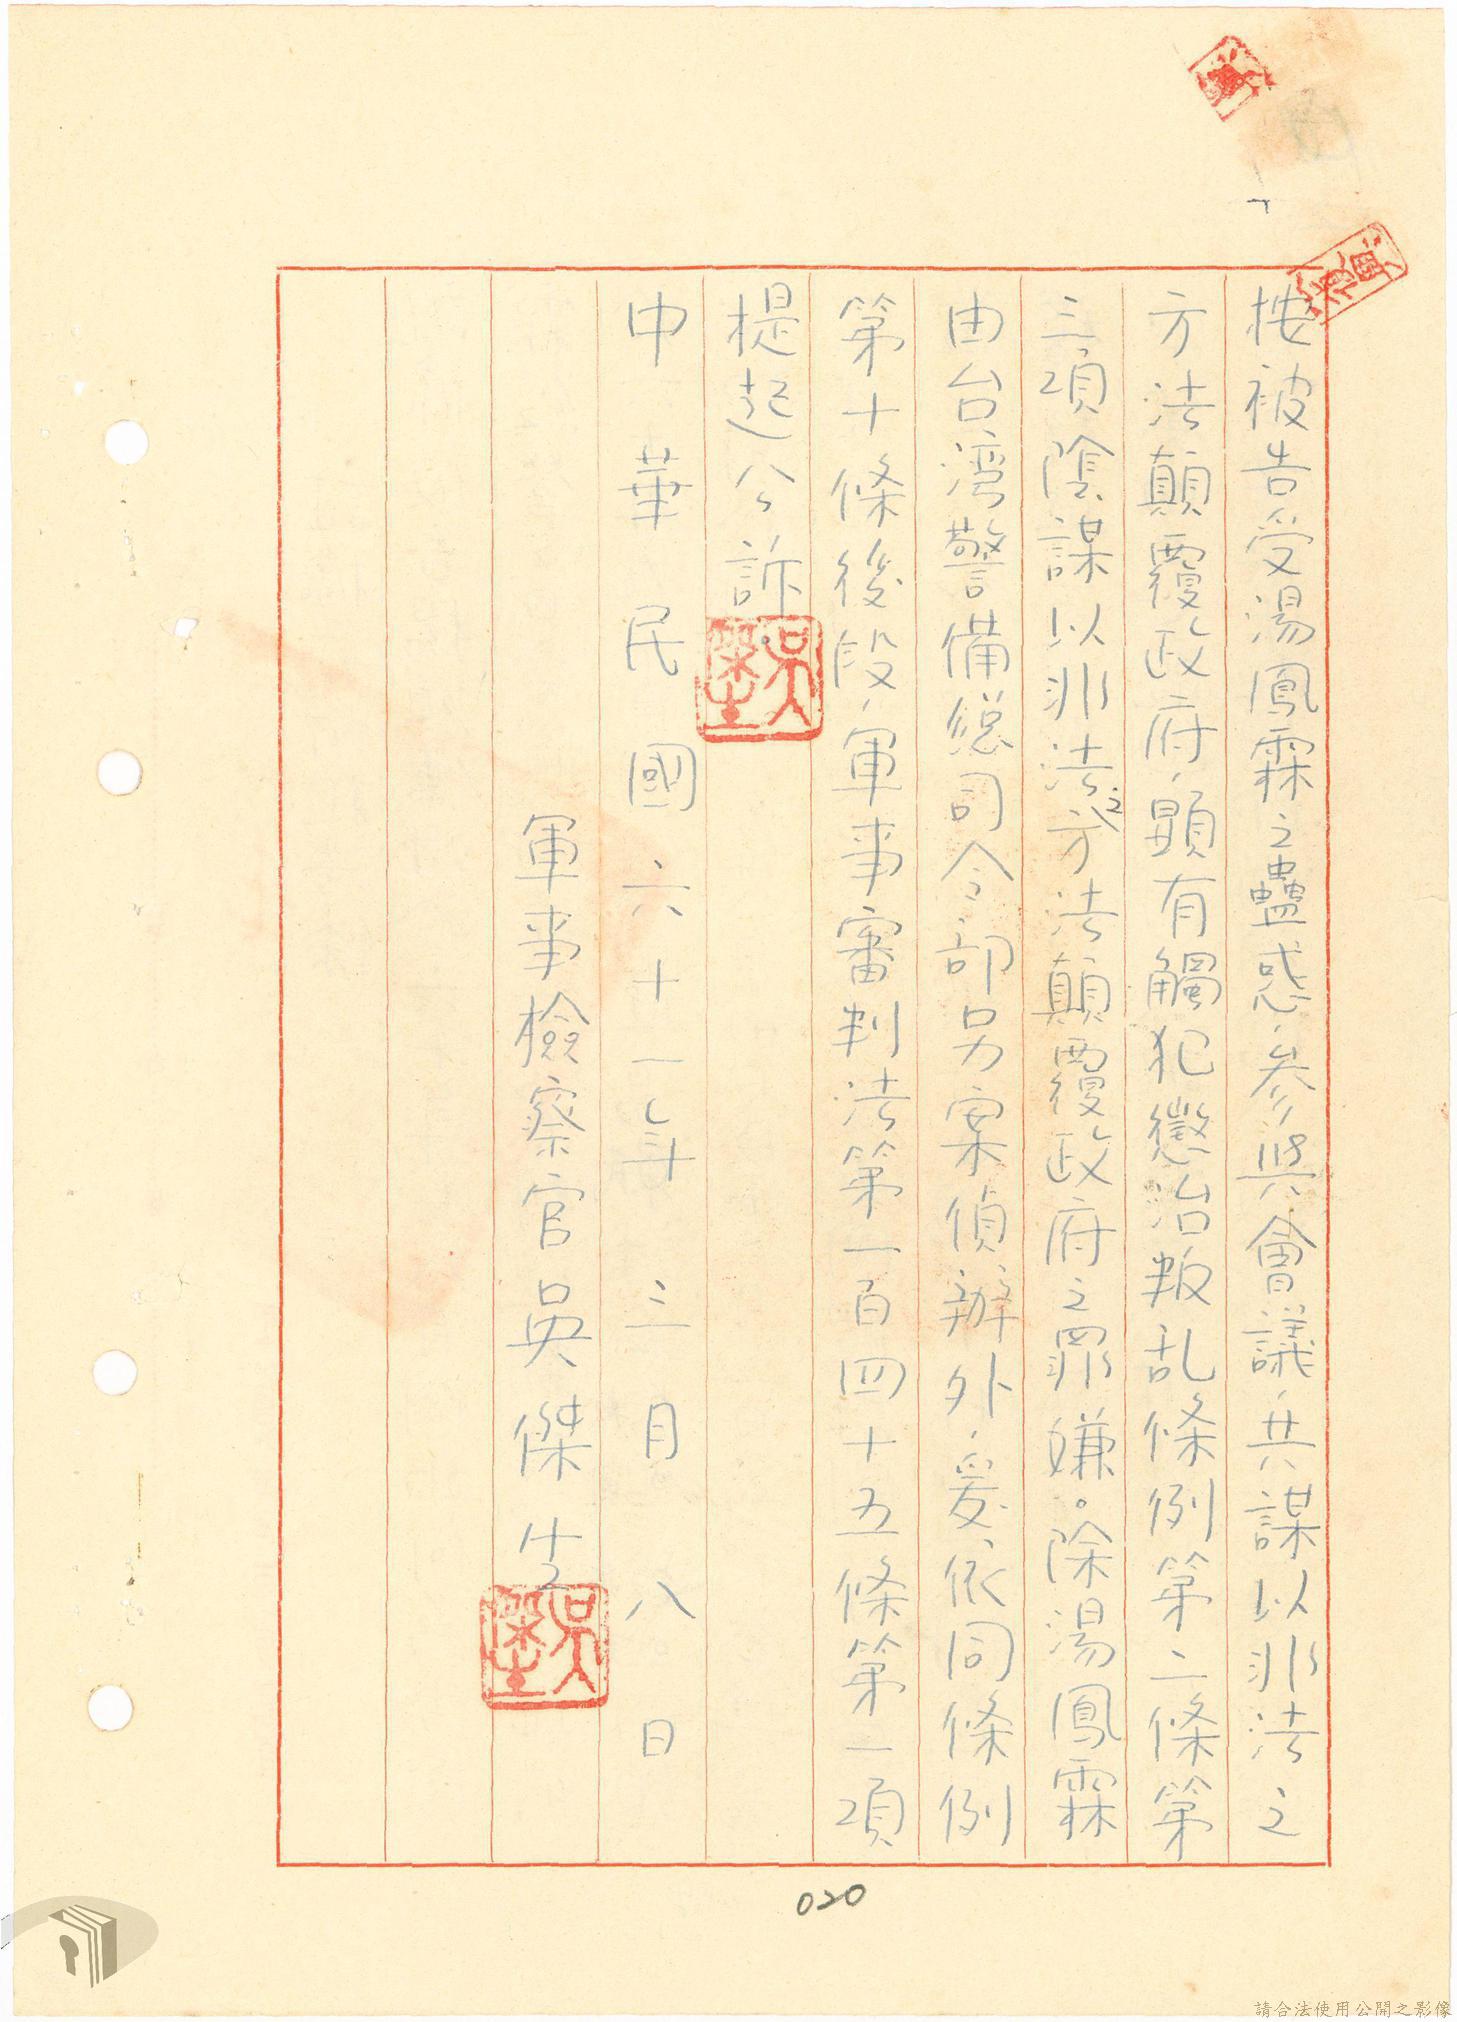 按被告受湯鳳霖之蠱惑，參與會議，共謀以非法之
方法顛覆政府，顕有觸犯懲治叛乱條例第二條第
三項陰謀以非法之方法顛覆政府之罪嫌。除湯鳳霖
由台湾警備總司令部另案偵辦外，爰依同條例
第十條後段，軍事審判法第一百四十五條第一項
提起公訴。
吳傑生
中華民國六十一年三月八日
軍事檢察官吳傑生
吳傑生
020
請合法使用公開之影像